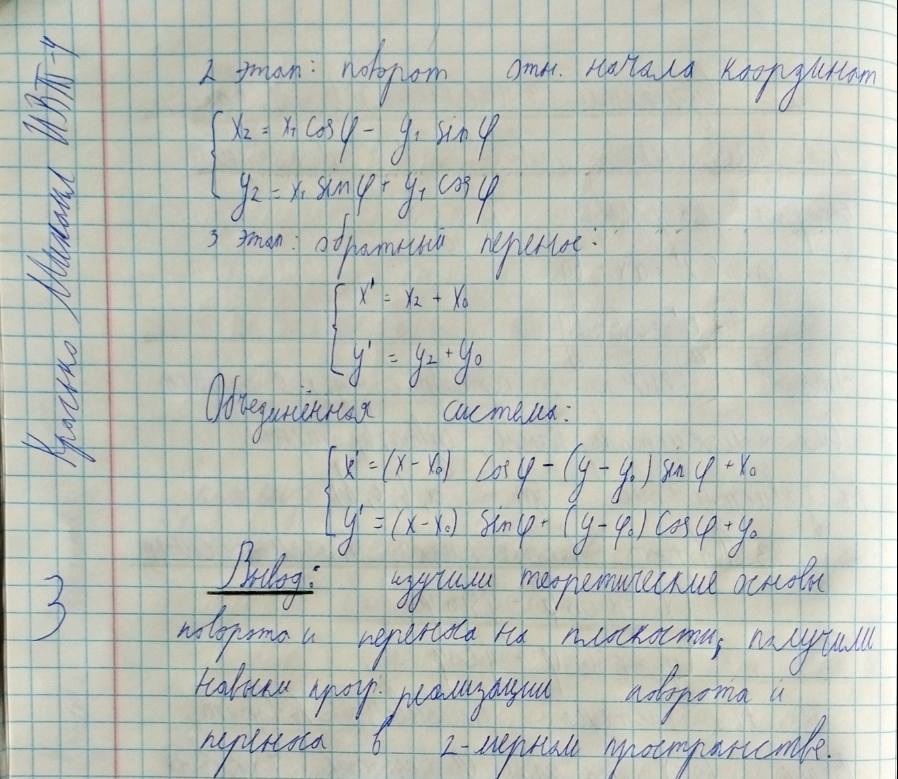 2 этап: поворот отн. начала координат
x₂ = x₁ cos φ - y₁ sin φ
y₂ = x₁ sin φ + y₁ cos φ
3 этап: обратный перенос:
x' = x₂ + x₀
y' = y₂ + y₀
Объединённая система:
x' = (x - x₀) cos φ - (y - y₀) sin φ + x₀
y' = (x - x₀) sin φ + (y - φ₀) cos φ + y₀
Вывод: изучили теоретические основы
поворота и переноса на плоскости, получили
навыки прогр. реализации поворота и
переноса в 2-мерном пространстве.
Михаил ИВТ-4
3